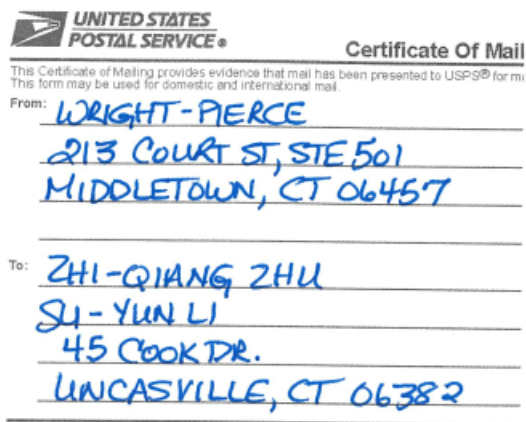 UNITED STATES
POSTAL SERVICE®
Certificate Of Mail
This Certificate of Mailing provides evidence that mail has been presented to USPS® for m
This form may be used for domestic and international mail.
From: WRIGHT-PIERCE
213 COURT ST, STE 501
MIDDLETOWN, CT 06457
To: ZHI-QIANG ZHU
SU-YUN LI
45 COOK DR.
UNCASVILLE, CT 06382